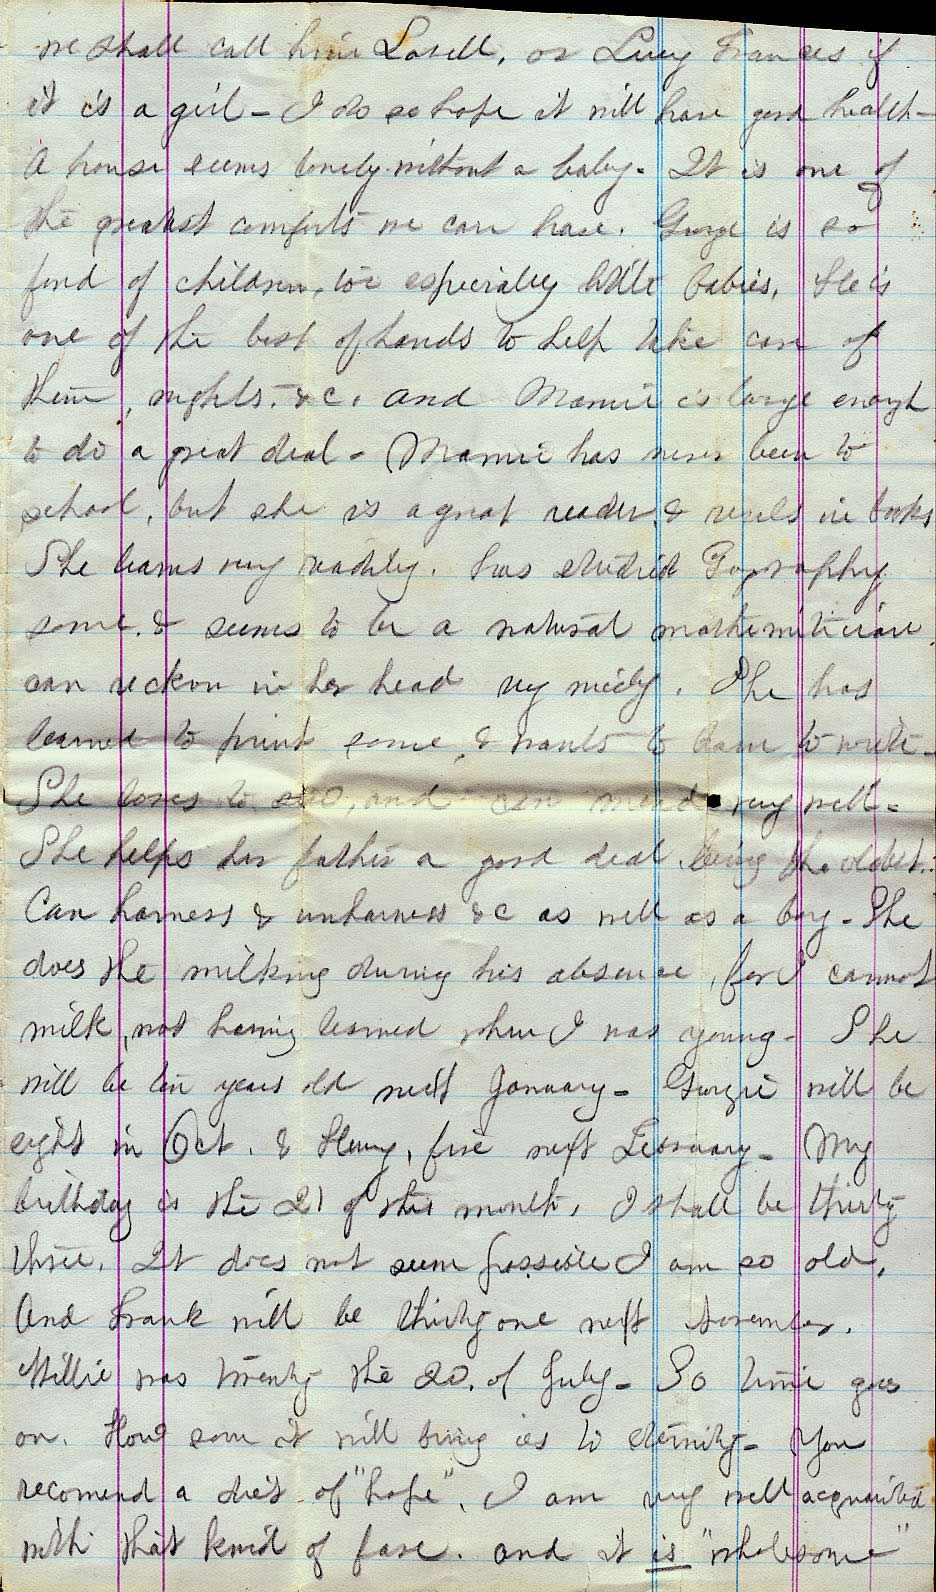 we shall call him Lovell, or Lucy Frances if
it is a girl - I do so hope it will have good health -
A house seems lonely without a baby - It is one of
the greatest comforts we can have. George is so
fond of children, too especially little babies, He is
one of the best of hands to help take care of
them, nights, &c. and Mamie is large enough
to do a great deal - Mamie has never been to
school, but she is a great reader & revels in books
She learns very readily. has studied Geography
some. & seems to be a natural mathematician
can reckon in her head very nicely. She has
learned to print some, & wants to learn to write -
She loves to sew, and can mend very well -
She helps her father a good deal being the oldest.
Can harness & unharness &c as well as a boy - She
does the milking during his absence, for I cannot
milk, not having learned when I was young - She
will be ten years old next January - Georgie will be
eight in Oct. & Henry, five next February - My
birthday is the 21 of this month, I shall be thirty
three. It does not seem possible I am so old,
And Frank will be thirty one next November.
Willie was twenty the 20. of July - So time goes
on. How soon it will bring us to eternity - You
recomend a diet of "hope". I am very well acquainted
with that kind of fare. and it is "wholesome"